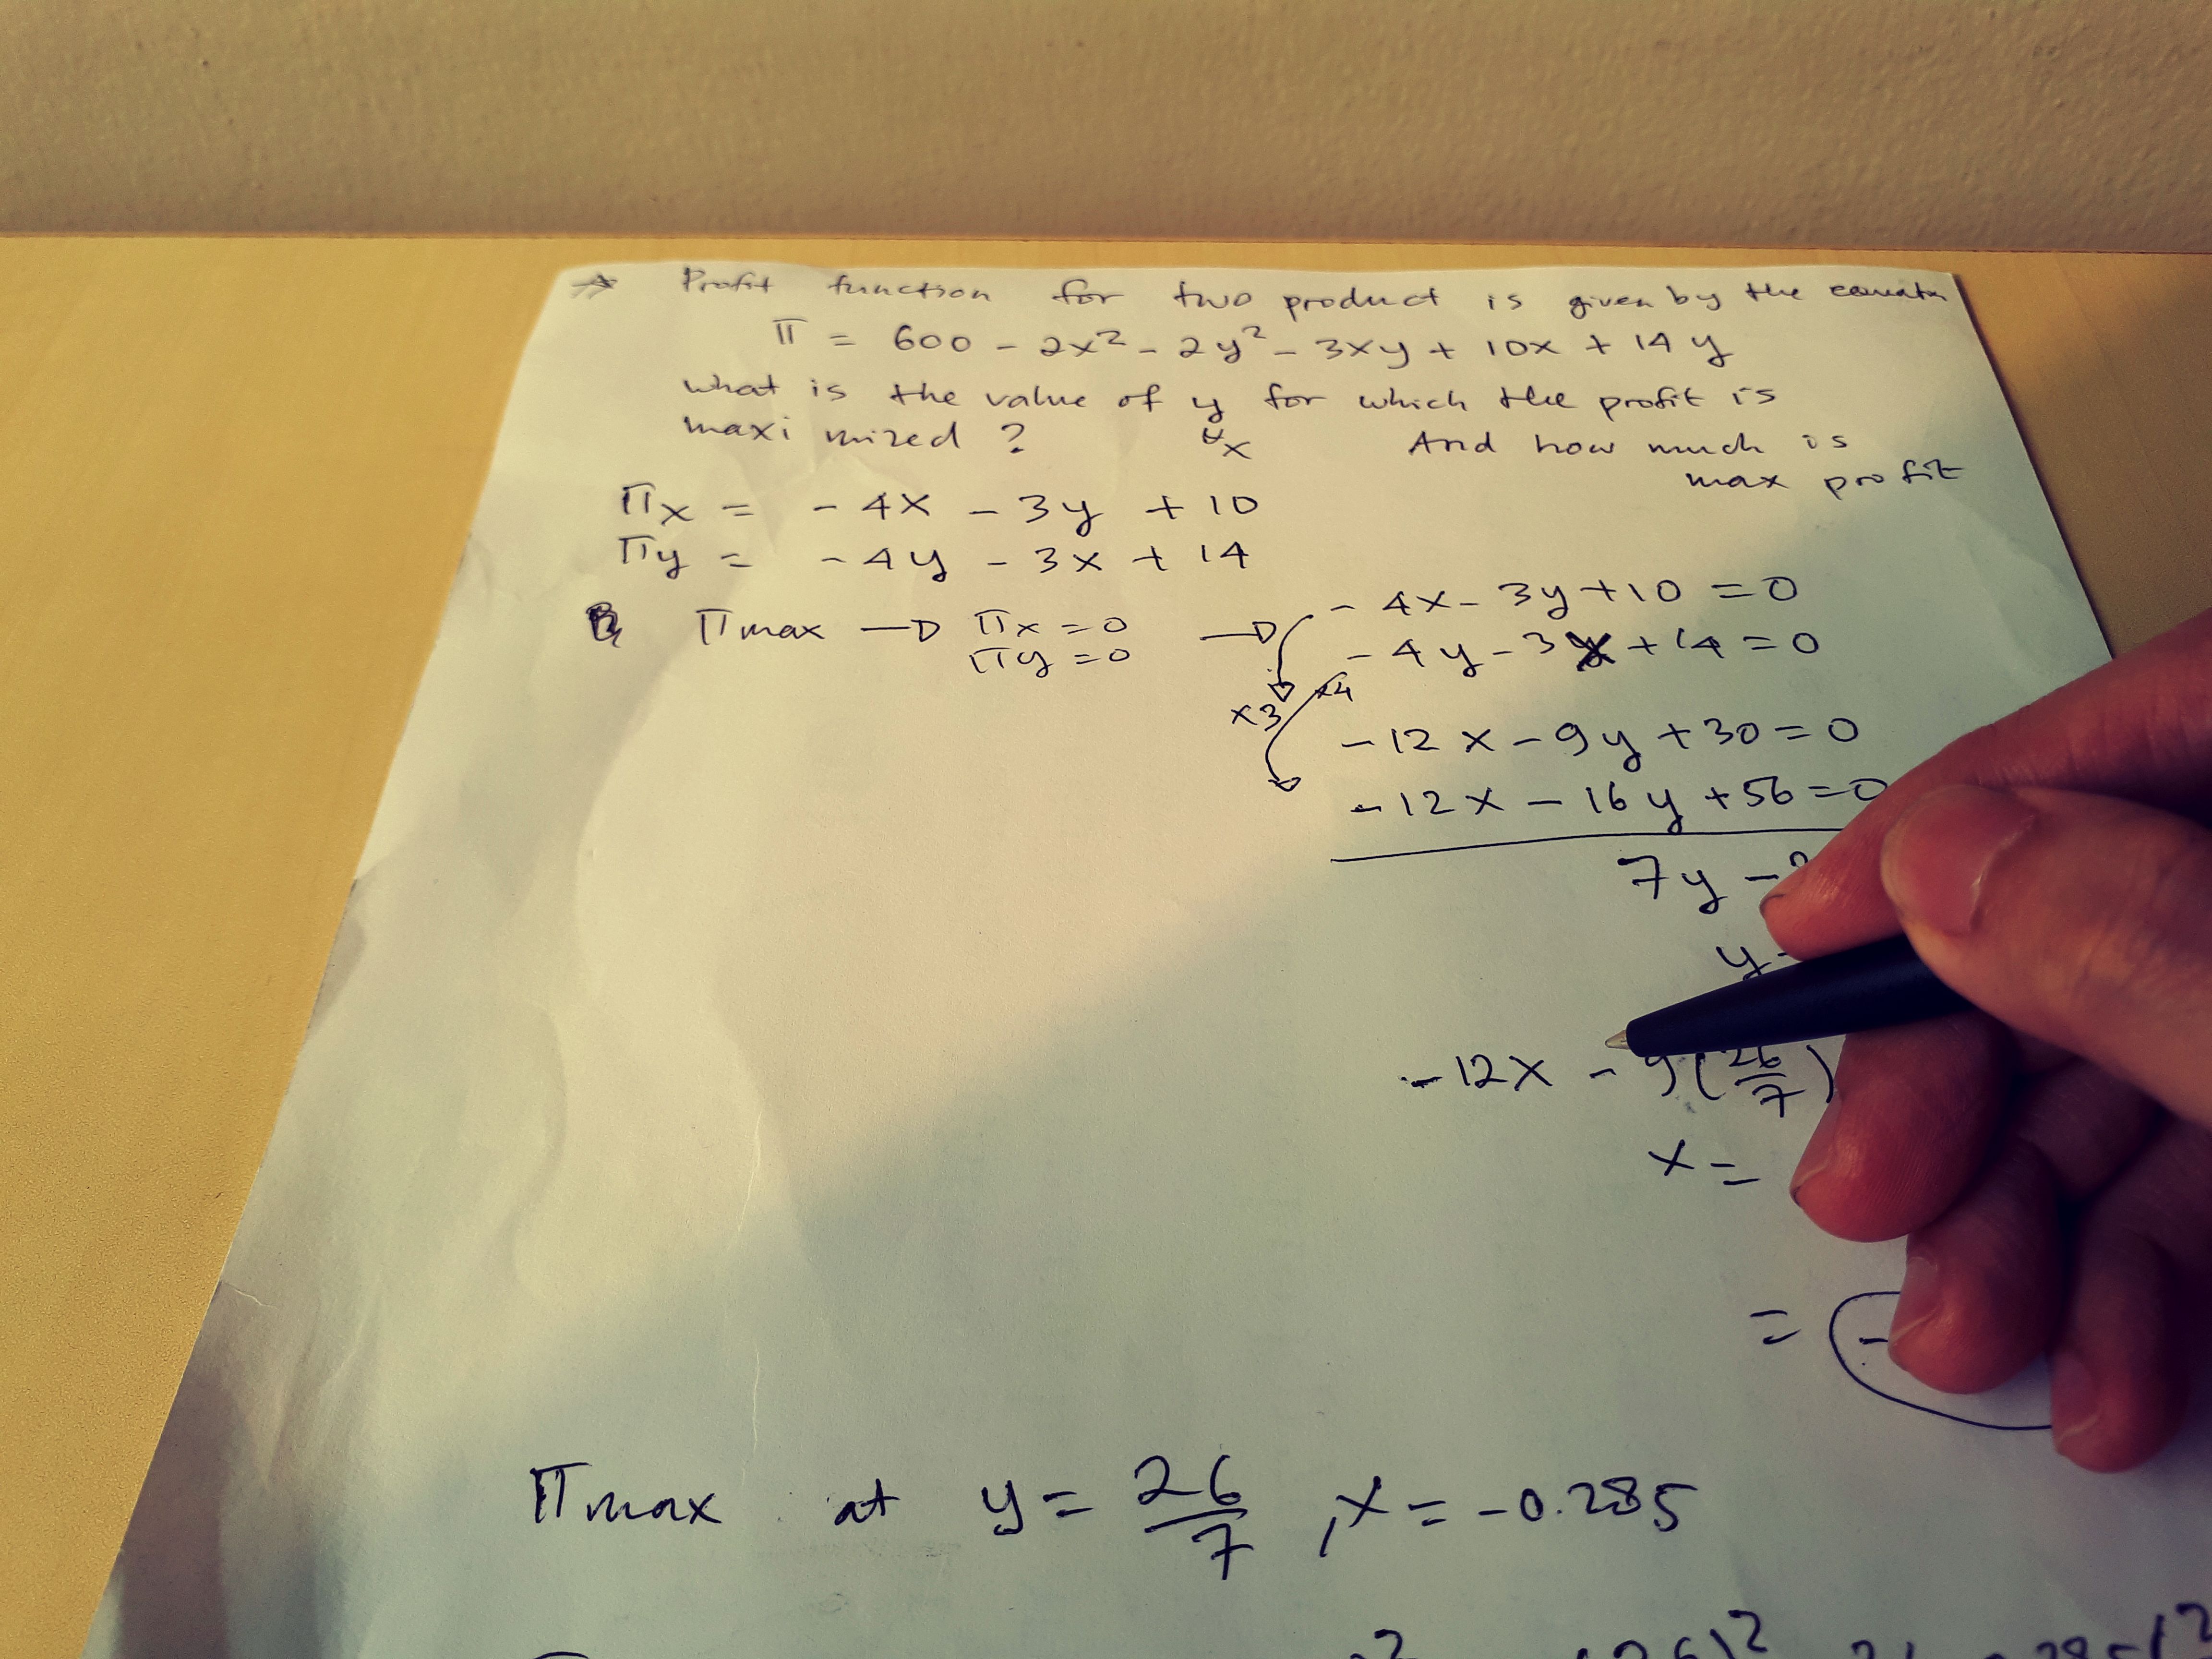 Profit function for two product is given by the
π = 600 - 2x² - 2y² - 3xy + 10x + 14y
what is the value of y for which the profit is
maximized ? & x And how much is
max profit
πx = - 4x - 3y + 10
πy = - 4y - 3x + 14
πmax → πx = 0 → - 4x - 3y + 10 = 0
πy = 0 - 4y - 3x + 14 = 0
x3 x4
- 12x - 9y + 30 = 0
- 12x - 16y + 56 = 0
7y -
y =
- 12x - 9(26/7)
x =
= -
πmax at y = 26/7 , x = -0.285